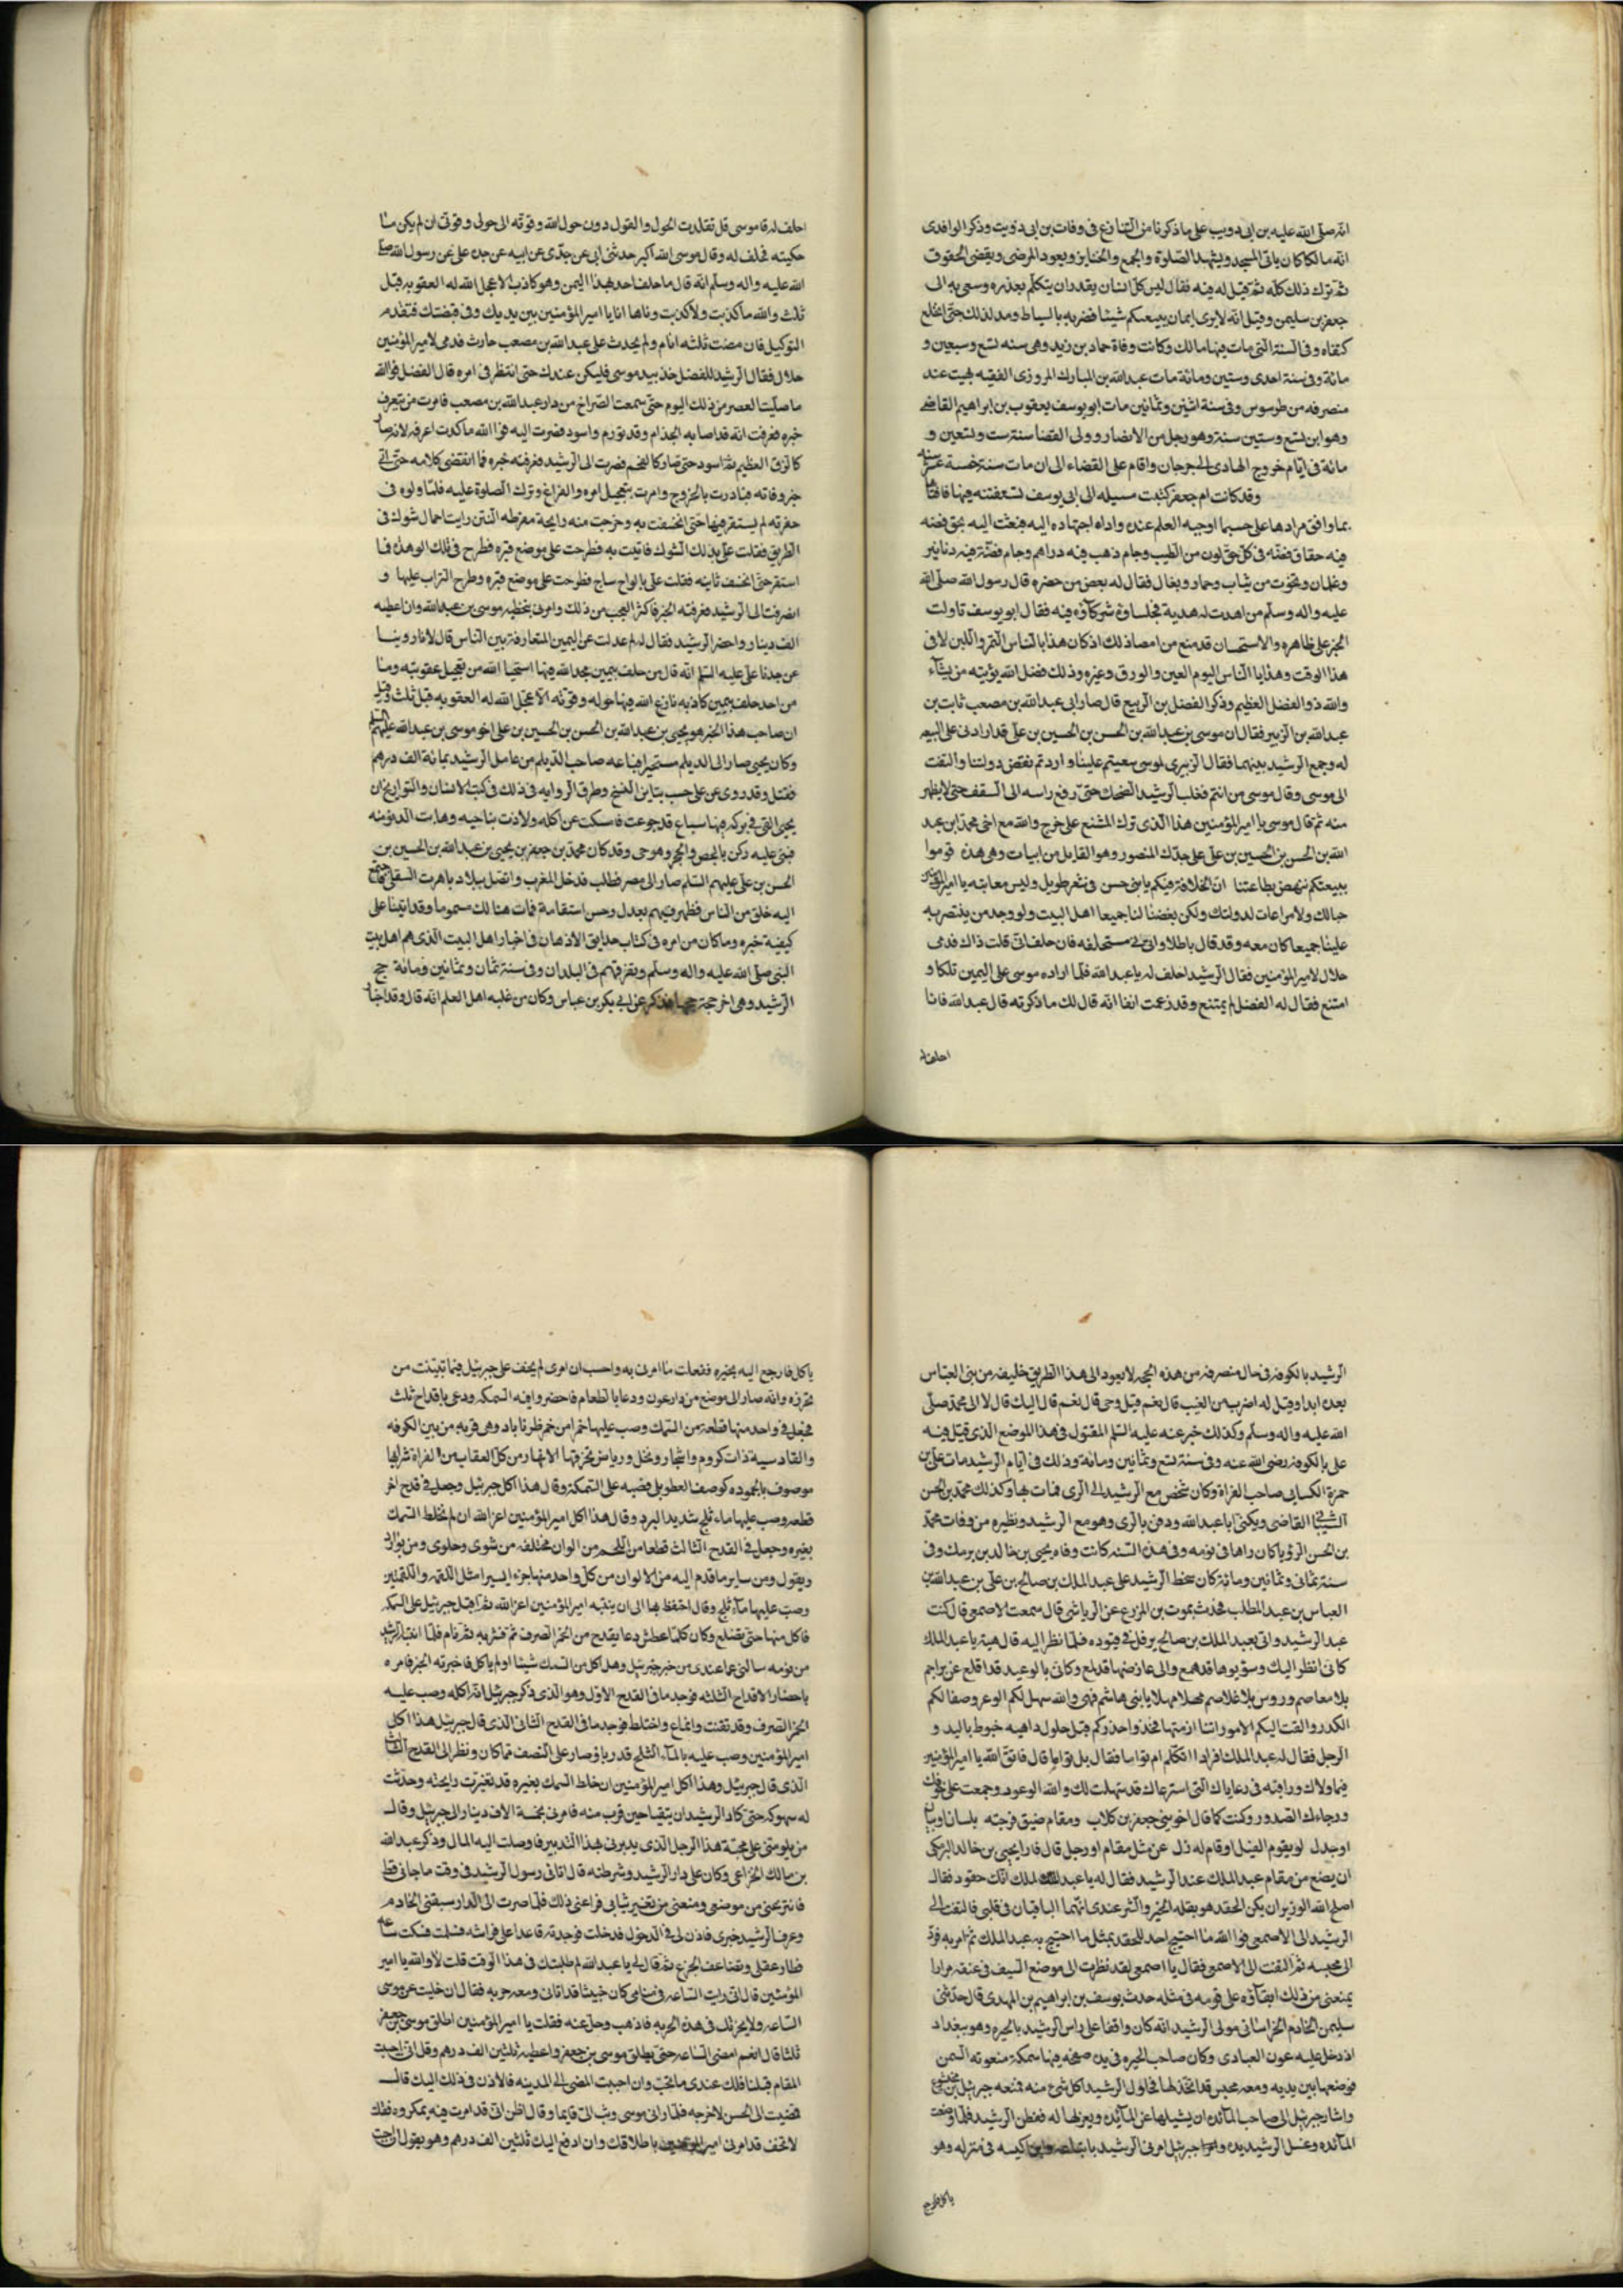 انه صلى الله عليه بن ابى دويب على ماذكرنا من التنازع فى وفات بن ابى دويت وذكر الواقدى
انه مالكا كان ياتى المسجد ويشهد الصلوة والجمع والجنايز ويعود المرضى ويقضى الحقوق
ثم ترك ذلك كله ثم قيل له فيه فقال ليس كل انسان يقدر ان يتكلم بعذره وسعى به الى
جعفر بن سليمن وقيل انه لا يرى ايمان بيعتكم شيئا فضربه بالسياط ومد لذلك حتى انخلع
كتفاه وفى السنة التى مات فيها مالك وكانت وفاة حماد بن زيد وهى سنه تسع وسبعين و
مائة وفى سنة احدى وستين ومائة مات عبد الله بن المبارك المروزى الفقيه بهيت عند
منصرفه من طرسوس وفى سنة اثنين وثمانين مات ابو يوسف يعقوب بن ابراهيم القاضى
وهو ابن تسع وستين سنة وهو رجل من الانصار وولى القضا سنة ست وتسعين و
مائة فى ايام خروج الهادى الى جرجان واقام على القضاء الى ان مات سنة خمسة عشر سنه
وقد كانت ام جعفر كتبت مسيله الى ابى يوسف تستفتنه فيها فافتاها
بما وافق مرادها على حسبما اوجبه العلم عنده واداه اجتهاده اليه فبعثت اليه بحق فضه
فيه حقاق فضه فى كل حق لون من الطيب وجام ذهب فيه دراهم وجام فضة فيه دنانير
وغلمان وتخوت من ثياب وحمار وبغال فقال له بعض من حضره قال رسول الله صلى الله
عليه واله وسلم من اهدت له هدية فجلساؤه شركاؤه فيه فقال ابو يوسف تاولت
الخبر على ظاهره والاستحسان قد منع من امضاذلك اذ كان هذا يا الناس التمر واللبن لا فى
هذا الوقت وهذايا الناس اليوم العين والورق وغيره وذلك فضل الله يؤتيه من يشاء
والله ذو الفضل العظيم وذكر الفضل بن الربيع قال صار ابى عبد الله بن مصعب ثابت بن
عبد الله بن الزبير فقال ان موسى بن عبد الله بن الحسن بن الحسين بن على قد ارادنى على البيعه
له وجمع الرشيد بينهما فقال الزبيرى لموسى سعيتم علينا واردتم نقض دولتنا والتفت
الى موسى وقال موسى من انتم فغلب الرشيد الضحك حتى رفع راسه الى السقف حتى لا يظهر
منه ثم قال موسى يا امير المؤمنين هذا الذى ترك المشنع على خرج والله مع اخى محمد ابن عبد
الله بن الحسن بن الحسين بن على على جدك المنصور وهو القايل من ابيات وهى هذه قوموا
ببيعتكم ننهض بطاعتنا ان الخلافة فيكم يا بنى حسن فى شعر طويل وليس معايته يا امير المؤمنين
حبا لك ولا مراعات لدولتك ولكن بغضنا لنا جميعا اهل البيت ولو وجد من ينتصر به
علينا جميعا كان معه وقد قال باطلا وانى مستحلفه فان حلف انى قلت ذاك فدمى
حلال لامير المؤمنين فقال الرشيد احلف له يا عبد الله فلما اراده موسى على اليمين تلكا و
امتنع فقال له الفضل لم يمتنع وقد زعمت انفا انه قال لك ما ذكرته قال عبد الله فانا
احلف له
احلف له قا موسى قل تقلدت الحول والقول دون حول الله وقوته الى حولى وقوتى ان لم يكن ما
حكيته فحلف له وقال موسى الله اكبر حدثنى ابى عن جدى عن ابيه عن جده على عن رسول الله صلى
الله عليه واله وسلم انه قال ما حلف احد بهذا اليمن وهو كاذب الا عجل الله له العقوبه قبل
ثلث والله ما كذبت ولا كذبت وناها انا يا امير المؤمنين بين يديك وفى قبضتك فتقدم
التوكيل فان مضت ثلثه انام ولم يحدث على عبد الله بن مصعب حادث فدمى لامير المؤمنين
حلال فقال الرشيد للفضل خذ بيد موسى فليكن عندك حتى انتظر فى امره قال الفضل فوالله
ما صليت العصر من ذلك اليوم حتى سمعت الصراخ من دار عبد الله بن مصعب فامرت من يتعرف
خبره فعرفت انه قد اصابه الجذام وقد تورم واسود فصرت اليه فوالله ما كدت اعرفه لانه صار
كالزق العظيم ثم اسود حتى صار كالفحم فصرت الى الرشيد فعرفته خبره فما انقضى كلامه حتى اتى
خبر وفاته فبادرت بالخروج وامرت بتعجيل امره والفراغ وترك الصلوة عليه فلما ولوه فى
حفرته لم يستقر فيها حتى انخسفت به وخرجت منه رايحة مفرطه النتن رايت احمال شوك فى
الطريق فقلت على بذلك الشوك فاتيت به فطرحت على موضع قبره فطرح فى تلك الوهذه فما
استقر حتى انخسف ثانيه فقلت على بالواح ساج فطرحت على موضع قبره وطرح التراب عليها و
انصرفت الى الرشيد فعرفته الخبر فاكثر التعجب من ذلك وامرنى بتخليه موسى بن عبد الله وان اعطيه
الف دينار واحضر الرشيد فقال له لم عدلت عن اليمين المتعارفة بين الناس قال لانا روينا
عن جدنا على عليه السلم انه قال من حلف بيمين مجد الله فيها استحيا الله من تعجيل عقوبته وما
من احد حلف بيمين كاذبه نازع الله فيها حوله وقوته الا عجل الله له العقوبه قبل ثلث وقيل
ان صاحب هذا الخبر هو يحيى بن عبد الله بن الحسن بن الحسين بن على اخو موسى بن عبد الله عليهم السلم
وكان يحيى صار الى الديلم مستجيرا فباعه صاحب الديلم من عامل الرشيد بمائة الف درهم
فقتل وقد روى عن على حسب تباين النسخ وطرق الروايه فى ذلك فى كتب الانسان والتواريخ ان
يحيى القى فى بركه فيها سباع قد جوعت فامسكت عن اكله ولاذت بناحيه وهابت الدنو منه
فبنى عليه ركن بالجص والحجر وهو حى وقد كان محمد بن جعفر بن يحيى بن عبد الله بن الحسين بن
الحسن بن على عليهم السلم صار الى مصر فطلب فدخل المغرب واتصل ببلاد ياهرت السفلى فاجتمع
اليه خلق من الناس فظهر فيهم بعدل وحسن استقامة فمات هنالك مسموما وقد اتينا على
كيفية خبره وما كان من امره فى كتاب حدايق الاذهان فى اخبار اهل البيت الذى هم اهل بيت
النبى صلى الله عليه واله وسلم وتفرقهم فى البلدان وفى سنة ثمان وثمانين ومائة حج
الرشيد وهى اخر حجة حجها فذكر عن ابى بكر بن عباس وكان من غلبه اهل العلم انه قال وقد اجتاز
الرشيد بالكوفة فى حال منصرفه من هذه الحجه لا يعود الى هذا الطريق خليفة من بنى العباس
بعده ابدا وقيل له اضرب من الغيب قال نعم قيل وحى قال نعم قال اليك قال لا الى محمد صلى
الله عليه واله وسلم وكذلك خبر عنه عليه السلم المقتول فى هذا الموضع الذى قتل فيه
على بالكوفة رضى الله عنه وفى سنة تسع وثمانين ومائة وذلك فى ايام الرشيد مات على بن
حمزة الكسايى صاحب القراة وكان شخص مع الرشيد الى الرى فمات بها وكذلك محمد بن الحسن
الشيبانى القاضى ويكنى ابا عبد الله ودفن بالرى وهو مع الرشيد ونظيره من وفات محمد
بن الحسن الرؤيا كان راها فى نومه وفى هذه السنه كانت وفاه يحيى بن خالد بن برمك وفى
سنة ثمانى وثمانين ومائة كان سخط الرشيد على عبد الملك بن صالح بن على بن عبد الله بن
العباس بن عبد المطلب فحدث يموت بن المزرع عن الرياشى قال سمعت الاصمعى قال كنت
عبد الرشيد واتى بعبد الملك بن صالح يرفل فى قيوده فلما نظر اليه قال هيه يا عبد الملك
كانى انظر اليك وسؤبوها قد همع والى عارضها قد لمع وكانى بالوعيد قد اقلع عن براجم
بلا معاصم وروس بلا غلاصم مهلا مهلا يا بنى هاشم فبى والله سهل لكم الوعر وصفا لكم
الكدر والقت اليكم الامور اثنا ازمتها فخذوا حذركم قبل حلول داهيه خبوط باليد و
الرجل فقال له عبد الملك افرادا اتكلم ام تؤاما فقال بل تؤاما قال فاتق الله يا امير المؤمنين
فيما ولاك وراقبه فى رعاياك التى استرعاك قد سهلت لك والله الوعود وجمعت على خوفك
ورجاءك الصدور وكنت كما قال اخو بنى جعفر بن كلاب ومقام ضيق فرجته بلسان او بيان
او جدل لو يقوم الفيل او قام له زل عن مثل مقام او رحل قال فارا يحيى بن خالد البرمكى
ان يضع من مقام عبد الملك عند الرشيد فقال له يا عبد الملك انك حقود فقال
اصلح الله الوزير ان يكن الحقد هو بقله الخير والشر عندى انهما الباقيان فى قلبى فالتفت الى
الرشيد الى الاصمعى فوالله ما احتج احد للحقد بمثل ما احتج به عبد الملك ثم امر به فرد
الى محبسه ثم التفت الى الاصمعى فقال يا اصمعى لقد نظرت الى موضع السيف فى عنقه مرارا
يمنعنى من ذلك ابقاؤه على قومه فى مثله حدث يوسف بن ابراهيم بن المهدى قال حدثنى
سليمن الخادم الخراسانى مولى الرشيد انه كان واقفا على راس الرشيد بالحيره وهو يتغداد
اذ دخل عليه عون العبادى وكان صاحب الحيره فى يده صحفه فيها سمكة منعوته السمن
فوضعها بين يديه ومعه محبس قد اتخذ لها فحاول الرشيد اكل شى منه فمنعه جبرئيل بن بختيشوع
واشار جبرئيل الى صاحب المائده ان يشيلها عن المائده ويعزلها له ففطن الرشيد فلما رفعت
المائده وغسل الرشيد يده جبرئيل امرنى الرشيد باكبسه فى منزله وهو
ياكل فارجع
ياكل فارجع اليه بخبره ففعلت ما امرنى به واحسب ان امرى لم يخف على جبرئيل فيما تبينت من
تحرزه وانه صار الى موضع من دار عون ودعا بالطعام فاحضروا فيه السمكه ودعى باقداح ثلث
فجعل فى واحد منها قطعه من السمك وصب عليها خمرا من خمر طرناباد وهى قريه من بين الكوفه
والقادسيه ذات كروم واشجار ونخل ورياض تخرقها الانهار من كل العقاب من الفراة شرابها
موصوف بالجوده كوصف القطربلى فصبه على السمكه وقال هذا اكل جبرئيل وجعل فى قدح اخر
قطعه وصب عليها ماء ثلج شديد البرد وقال هذا اكل امير المؤمنين اعزه الله ان لم يخلط السمك
بغيره وجعل فى القدح الثالث قطعا من اللحم من الوان مختلفه من شوى وحلوى ومن بوارد
وبقول ومن ساير ما قدم اليه من الالوان من كل واحد منها جزء ايسيرا مثل اللقمه واللقمتين
وصب عليها ماء ثلج وقال احفظ بها الى ان ينتبه امير المؤمنين اعزه الله ثم اقبل جبرئيل على السمكه
فاكل منها حتى تضلع وكان كلما عطش دعا بقدح من الخمر الصرف ثم فشربه ثم نام فلما انتبه الرشيد
من نومه سالنى عما عندى من خبر جبرئيل وهل اكل من السمك شيئا او لم ياكل فاخبرته الخبر فامره
باحضار الاقداح الثلثه فوجد ما فى القدح الاول وهو الذى ذكر جبرئيل انه اكله وصب عليه
الخمر الصرف وقد تفتت وانماع واختلط فوجد ما فى القدح الثانى الذى قال جبرئيل هذا اكل
امير المؤمنين وصب عليه بالماء الثلج قد ربا وصار على النصف مما كان ونظر الى القدح الثالث
الذى قال جبرئيل وهذا اكل امير المؤمنين ان خلط السمك بغيره قد تغيرت رايحته وحدثت
له سهوكه حتى كاد الرشيد ان يتقيا حين قرب منه فامرنى بخمسة الاف دينار الى جبرئيل وقال
من يلومنى على محبة هذا الرجل الذى يدبرنى هذا التدبير فاوصلت اليه المال وذكر عبد الله
بن مالك الخزاعى وكان على دار الرشيد وشرطته قال اتانى رسول الرشيد فى وقت ما جانى قط
فانتزعنى من موضعى ومنعنى من تغيير ثيابى فراعنى ذلك فلما صرت الى الدار سبقنى الخادم
وعرف الرشيد خبرى فاذن لى فى الدخول فدخلت فوجدته قاعدا على فراشه فسلمت فسكت ساعه
فطار عقلى وتضاعف الجزع ثم قال لى يا عبد الله لم طلبتك فى هذا الوقت قلت لا والله يا امير
المؤمنين قال انى رايت الساعه فى منامى كان حبشا قد اتانى ومعه حربه فقال ان خليت عن موسى
الساعه ولا نحرتك فى هذه الحربه فاذهب وحل عنه فقلت يا امير المؤمنين اطلق موسى بن جعفر
ثلثا قال نعم امض الساعه حتى يطلق موسى بن جعفر واعطيه ثلثين الف درهم وقل ان احببت
المقام قبلنا فلك عندى ما تحب وان احببت المضى الى المدينه فالاذن فى ذلك اليك قال
فمضيت الى الحبس لاخرجه فلما رانى موسى وثب الى قايما وقال ظن انى قد امرت فيه بمكروه فقلت
لا تخف قد امرنى امير المؤمنين باطلاقك وان ادفع اليك ثلثين الف درهم وهو يقول ان احببت